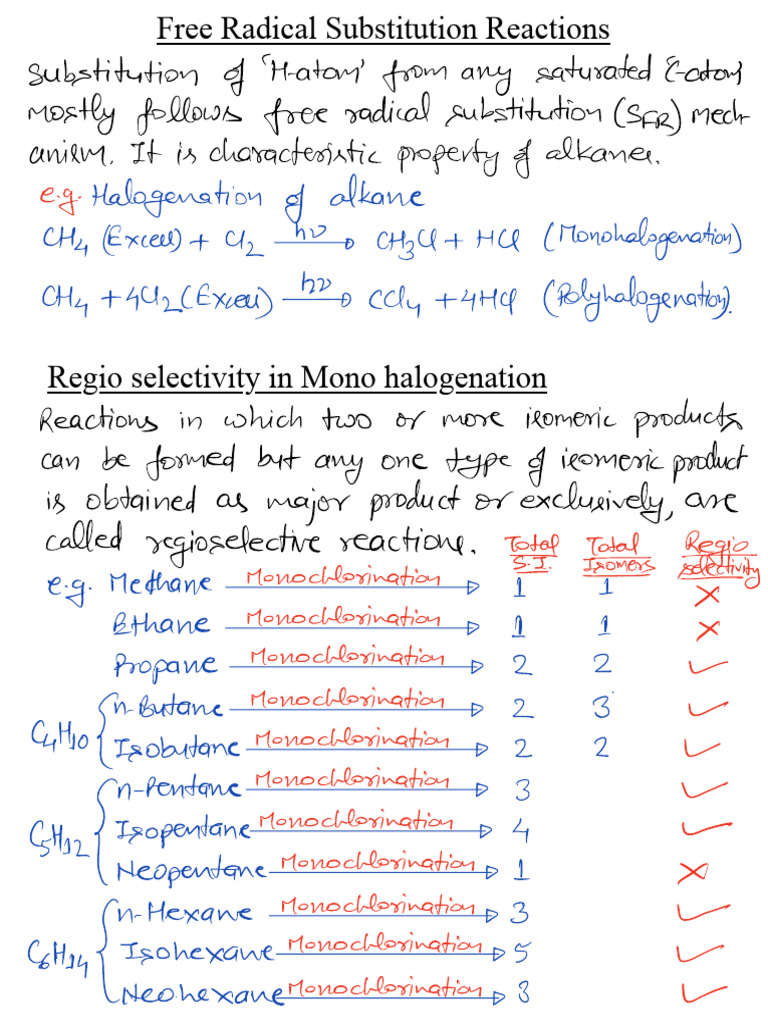 Free Radical Substitution Reactions
Substitution of 'H-atom' from any saturated 'C-atom'
mostly follows free radical substitution (SFR) mech-
anism. It is characteristic property of alkanes.
e.g. Halogenation of alkane
CH4 (Excess) + Cl2 hν CH3Cl + HCl (Monohalogenation)
CH4 + 4Cl2 (Excess) hν CCl4 + 4HCl (Polyhalogenation).
Regio selectivity in Mono halogenation
Reactions in which two or more isomeric products
can be formed but any one type of isomeric product
is obtained as major product or exclusively, are
called regioselective reactions. Total S.I. Total Isomers Regio selectivity
e.g. Methane Monochlorination 1 1 ×
Ethane Monochlorination 1 1 ×
Propane Monochlorination 2 2 ✓
C4H10 n-Butane Monochlorination 2 3 ✓
Isobutane Monochlorination 2 2 ✓
n-Pentane Monochlorination 3 ✓
C5H12 Isopentane Monochlorination 4 ✓
Neopentane Monochlorination 1 ×
n-Hexane Monochlorination 3 ✓
C6H14 Isohexane Monochlorination 5 ✓
Neohexane Monochlorination 3 ✓